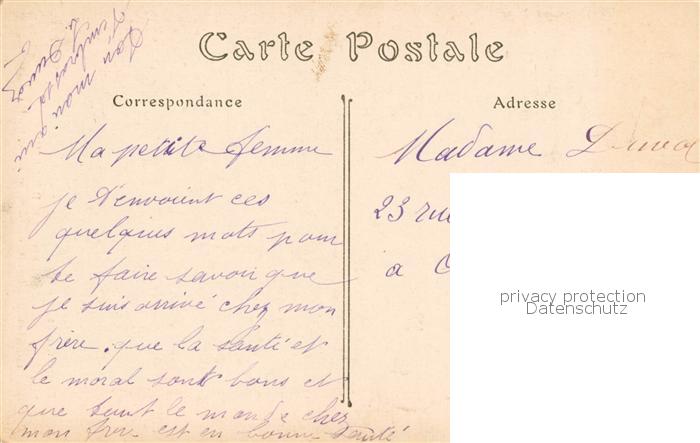 Carte Postale
Correspondance
Adresse
Ma petite femme
je t'envoient ces
quelques mots pour
te faire savoir que
je suis arrivé chez mon
frère que la santé et
le moral sont bons et
que tout le monde chez
mon frere est en bonne santé
Ton mon ami
t'embrasse
Madame
23 rue
a
privacy protection
Datenschutz